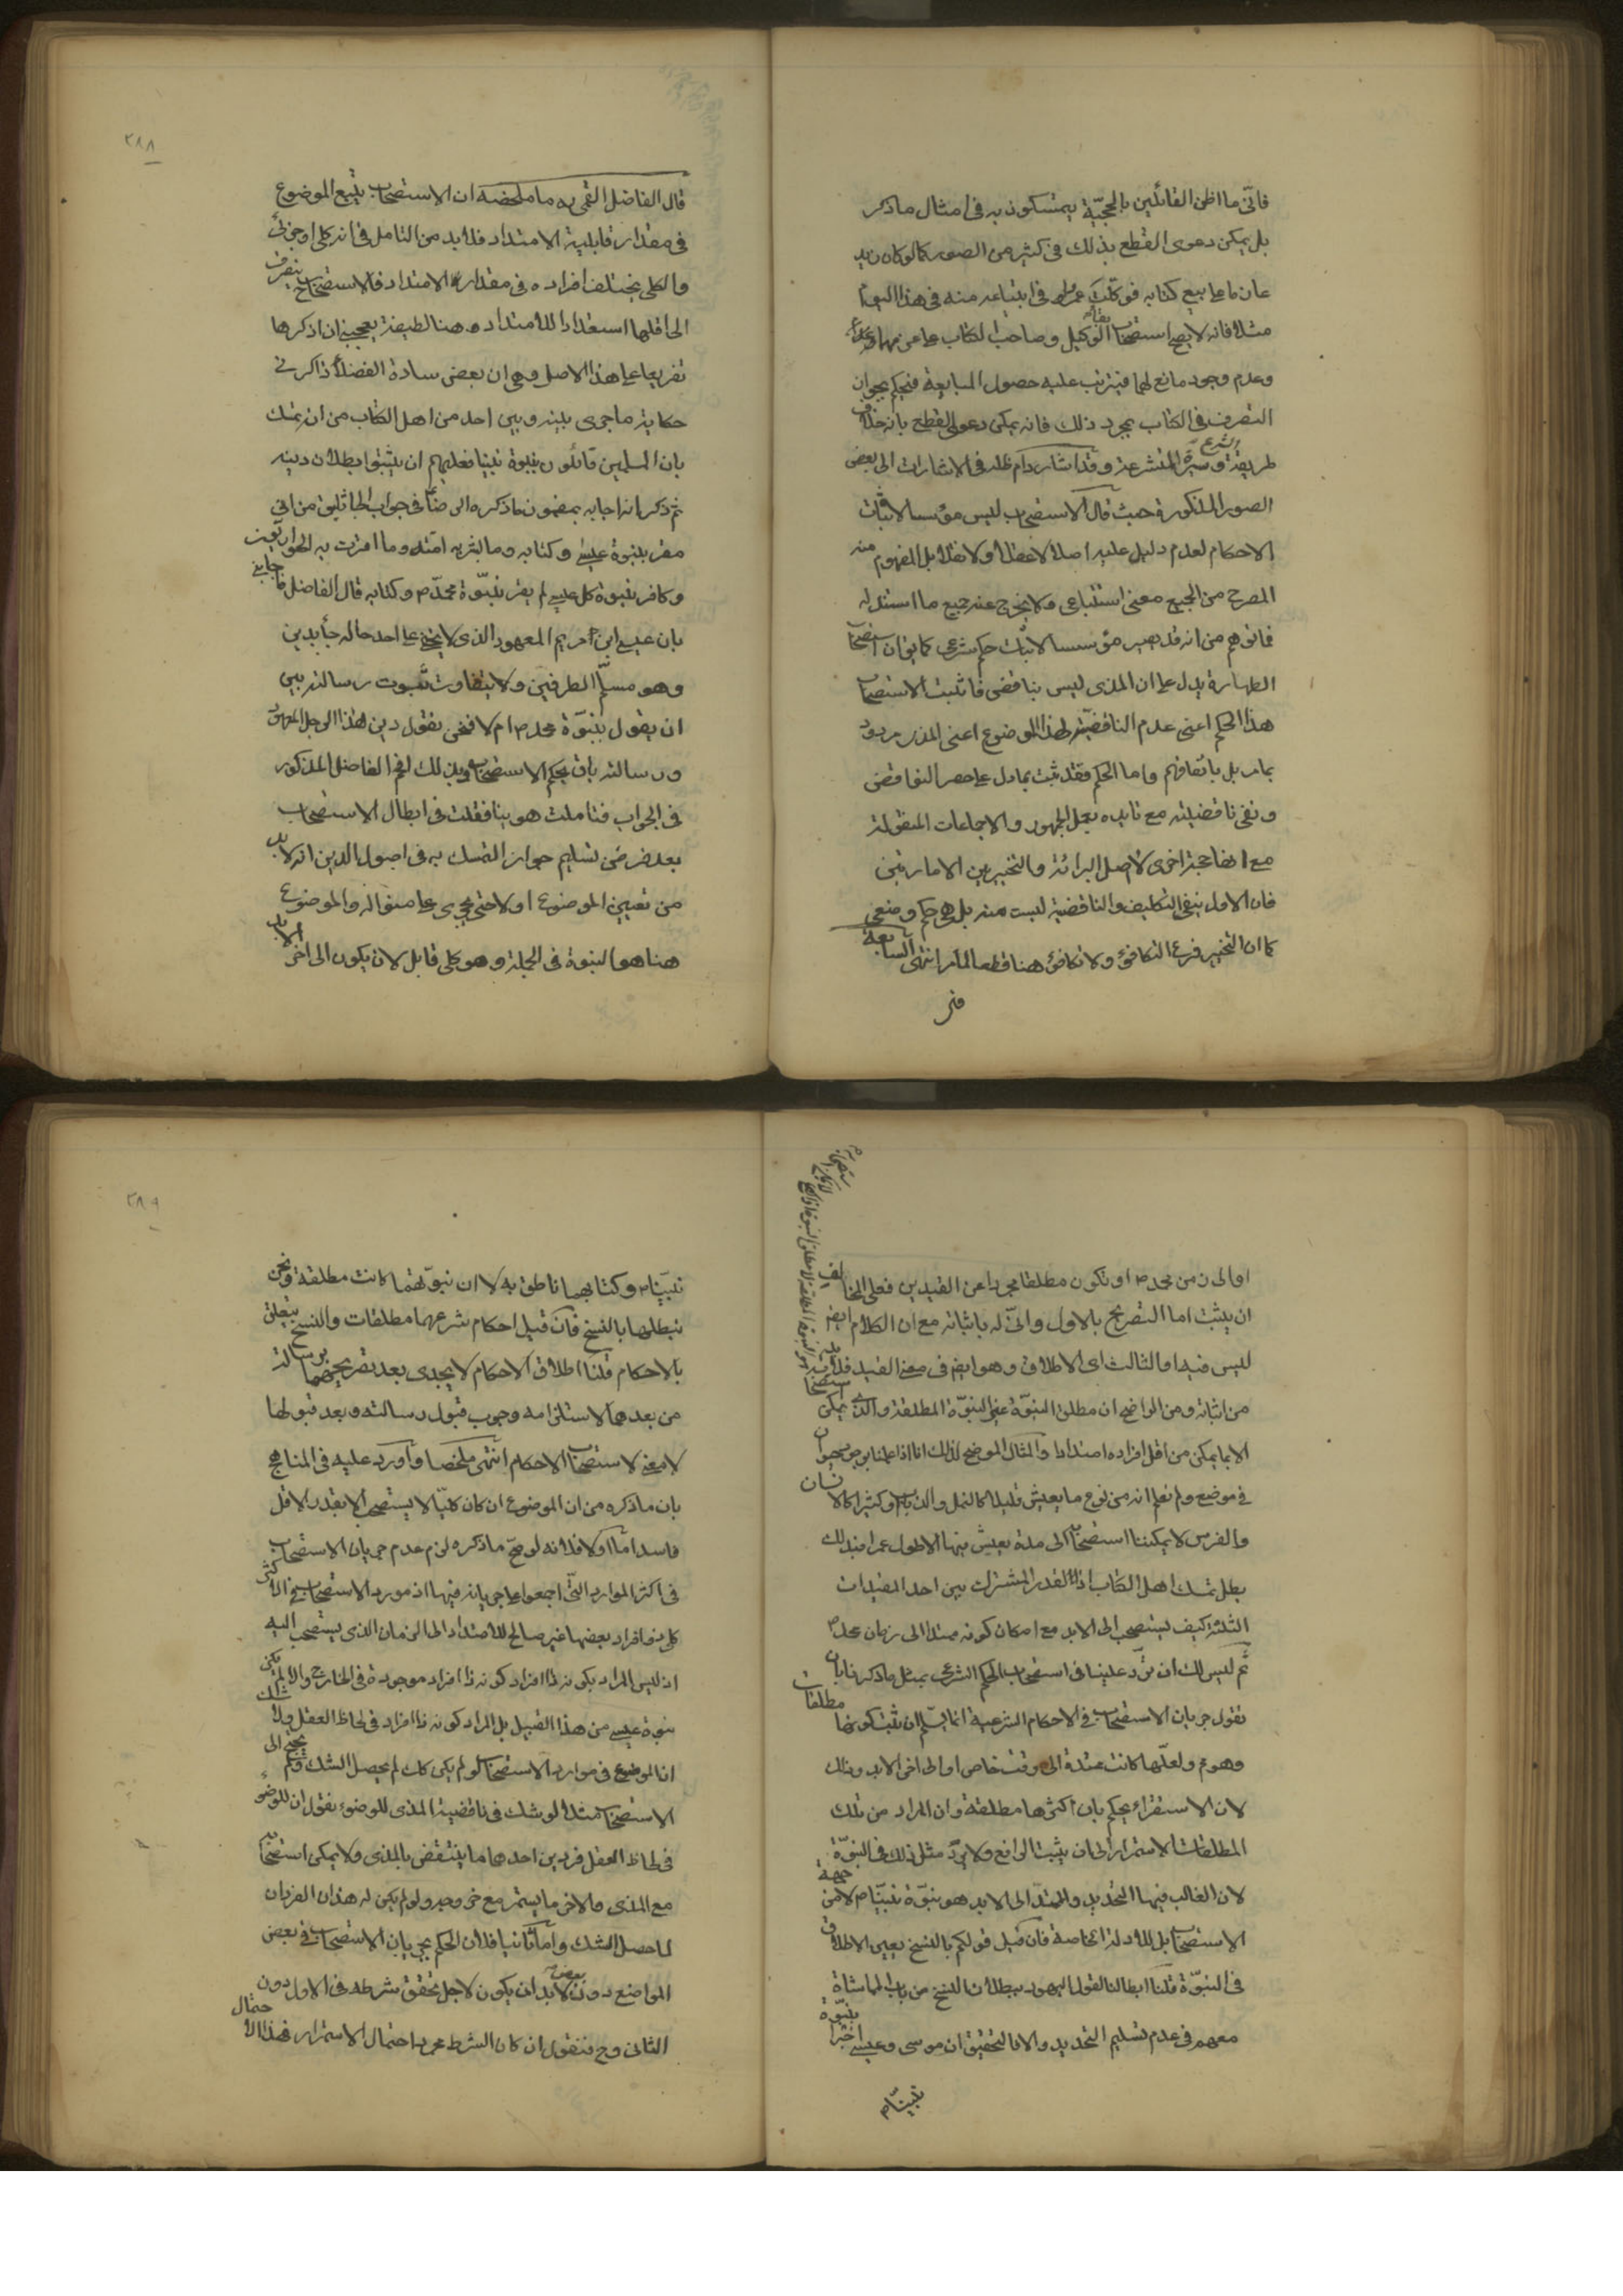 فانّى ما اظن القائلين بالحجيّة يتمسكون به فى امثال ما ذكر
بل يمكن دعوى القطع بذلك فى كثير من الصور كما لو كان زيد
عازما على بيع كتابه فوكّلك عمرو فى ابتياعه منه فى هذا اليوم
مثلا فانه لا يصح استصحاب بقاء الوكيل وصاحب الكتاب على عزمهما
وعدم وجود مانع لهما فيترتب عليه حصول المبايعة فيحكم بجواز
التصرف فى الكتاب بمجرد ذلك فانه يمكن دعوى القطع بانه خلاف
طريقة الشرع وسيرة المتشرعة وقد اشار دام ظله فى الاشارات الى بعض
الصور المذكورة حيث قال الاستصحاب ليس مؤسسا لاثبات
الاحكام لعدم دليل عليه اصلا لا عقلا ولا نقلا بل المفهوم منه
المصرح من الجميع معنى استتباعى ولا يخرج عنه جميع ما استدل له
فما توهم من انه قد يصير مؤسسا لاثبات حكم شرعى كما يق ان استصحاب
الطهارة يدل على ان المذى ليس بناقض فاثبت الاستصحاب
هذا الحكم اعنى عدم الناقضيّة لهذا الموضوع اعنى المذى مردود
بمامر بل باتفاقهم واما الحكم فقد ثبت بما دل على حصر النواقض
ونفى ناقضيته مع تايده بعمل الجمهور والاجماعات المنقولة
مع انها حجة اخرى لاصل البرائة والتخيير بين الامارتين
فان الاول ينفى التكليف والناقضية ليست منه بل هى حكم وضعى
كما ان التخيير فرع التكافؤ ولا تكافؤ هنا قطعا لما مر انتهى السابعة
قال الفاضل القمى ره ما ملخصه ان الاستصحاب يتبع الموضوع
فى مقدار قابلية الامتداد فلا بد من التامل فى انه كلى او جزئى
والكلى يختلف افراده فى مقدار الامتداد فالاستصحاب ينصرف
الى اقلها استعدادا للامتداد وهنا لطيفة يعجبنى ان اذكرها
تفريعا على هذا الاصل وهى ان بعض سادة الفضلاء ذاكرنى
حكاية ما جرى بينه وبين احد من اهل الكتاب من انه تمسك
بان المسلمين قائلون بنبوة نبينا فعليهم ان يثبتوا بطلان دينه
ثم ذكر انه اجابه بمضمون ما ذكره الرضا فى جواب الجاثليق من انى
مقر بنبوة عيسى وكتابه وما بشر به امته وما اقرت به الحواريون
وكافر بنبوة كل عيسى لم يقر بنبوّة محمّد ص وكتابه قال الفاضل فاجابنى
بان عيسى ابن مريم المعهود الذى لا يخفى على احد حاله جاء بدين
وهو مسلّم الطرفين ولا يتفاوت ثبوت رسالته بين
ان يقول بنبوّة محمد ص ام لا فنحن نقول دين هذا الرجل المعهود
ورسالته باق بحكم الاستصحاب وبذلك افحم الفاضل المذكور
فى الجواب فتاملت هوينا فقلت فى ابطال الاستصحاب
بعد فرض تسليم جواز التمسك به فى اصول الدين انه لا بد
من تعيين الموضوع اولا حتى يجرى على منواله والموضوع
هنا هو النبوة فى الجملة وهو كلى قابل لان يكون الى اخر الابد
او الى زمن محمد ص او تكون مطلقا مجردا عن القيدين فعلى المخالف
ان يثبت اما التصريح بالاول وانّى له باثباته مع ان الكلام ايض
ليس فيه او الثالث اى الاطلاق وهو ايض فى معنى القيد فلا بد
من اثباته ومن الواضح ان مطلق النبوّة غير النبوّة المطلقة والذى يمكن استصحابه
الا بما يمكن من اقل افراده امتدادا والمثال الموضح لذلك انا اذا علمنا بوجود حيوان
فى موضع ولم نعلم انه من نوع ما يعيش قليلا كالنمل والذباب او كثيرا كالانسان
والفرس لا يمكننا استصحابه الى مدة يعيش فيها الاطول عمرا فبذلك
بطل تمسك اهل الكتاب اذ القدر المشترك بين احد المقيدات
الثلثة كيف يستصحب الى الابد مع امكان كونه ممتدا الى زمان محمد ص
ثم ليس لك ان ترد علينا فى استصحاب الحكم الشرعى بمثل ما ذكر بان
نقول جريان الاستصحاب فى الاحكام الشرعية انما يتم ان ثبت كونها مطلقات
وهو مم ولعلّها كانت ممتدة الى وقت خاص او الى اخر الابد وذلك
لان الاستقراء يحكم بان اكثرها مطلقة وان المراد من تلك
المطلقات الاستمرار الى ان يثبت الرافع ولا يرد مثل ذلك فى النبوّة
لان الغالب فيها التحديد والممتدّ الى الابد هو نبوّة نبيّنا ص لا من جهة
الاستصحاب بل للادلة الخاصة فان قيل قولكم بالنسخ يعين الاطلاق
فى النبوّة قلنا ابطالنا لقول اليهود ببطلان النسخ من باب المماشاة
معهم فى عدم تسليم التحديد والا فالتحقيق ان موسى وعيسى اخبرا بنبوّة
نبيّنا ص
نبيّنا ص وكتابهما ناطق به لا ان نبوّتهما كانت مطلقة ونحن
نبطلها بالنسخ فان قيل احكام شرعهما مطلقات والنسخ يتعلق
بالاحكام قلنا اطلاق الاحكام لا يجدى بعد تصريحهما برسالة
من بعدهما لاستلزامه وجوب قبول رسالته وبعد قبولها
لا معنى لاستصحاب الاحكام انتهى ملخصا واورد عليه فى المناهج
بان ما ذكره من ان الموضوع ان كان كليّا لا يستصحب الا بقدر الاقل
فاسد امّا اولا فلانه لو صحّ ما ذكره لزم عدم جريان الاستصحاب
فى اكثر الموارد التى اجمعوا على جريانه فيها اذ مورد الاستصحاب فى الاكثر
كلى ذو افراد بعضها غير صالح للامتداد الى الزمان الذى يستصحب اليه
اذ ليس المراد بكونه ذا افراد كونه ذا افراد موجودة فى الخارج والا لم يكن
نبوة عيسى من هذا القبيل بل المراد كونه ذا افراد فى لحاظ العقل ولا شك
ان الموضوع فى موارد الاستصحاب لو لم يكن كك لم يحصل الشك ولم يحتج الى
الاستصحاب مثلا لو شك فى ناقضية المذى للوضوء نقول ان للوضوء
فى لحاظ العقل فردين احدهما ما ينتقض بالمذى ولا يمكن استصحابه
مع المذى والاخر ما يستمر مع خروجه ولو لم يكن له هذان الفردان
لما حصل الشك واما ثانيا فلان الحكم بجريان الاستصحاب فى بعض
المواضع دون بعض لا بد ان يكون لاجل تحقق شرطه فى الاول دون
الثانى وح فنقول ان كان الشرط مجرد احتمال الاستمرار فهذا الاحتمال